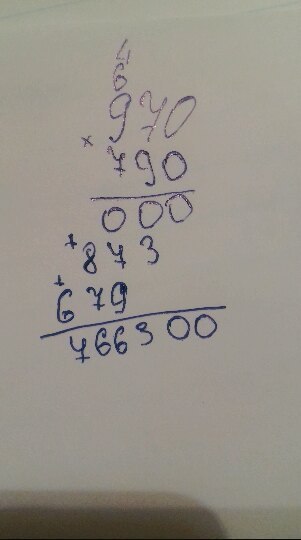 4
6
970
× 790
000
+ 873
+ 679
766300